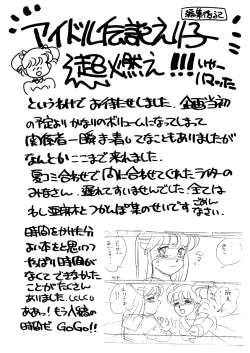 編集後記
アイドル伝説えり子
超燃え!!!
いやー
というわけで お待せしました。企画当初
の予定よりかなりのボリュームになってしまって
関係者一瞬まっ青なんてこともありましたが
なんとかここまで来れました。
夏コミ合わせで間に合わせてくれたライターの
みなさん。遅れてすいませんでした。全ては
ごめん
なさい。
時間をかけた分
よい本をと思いつつ
やっぱり時間が
なくてできなかった
ことがたくさん
ありました。
ああっ!もう入稿の
時間だ GoGo!!